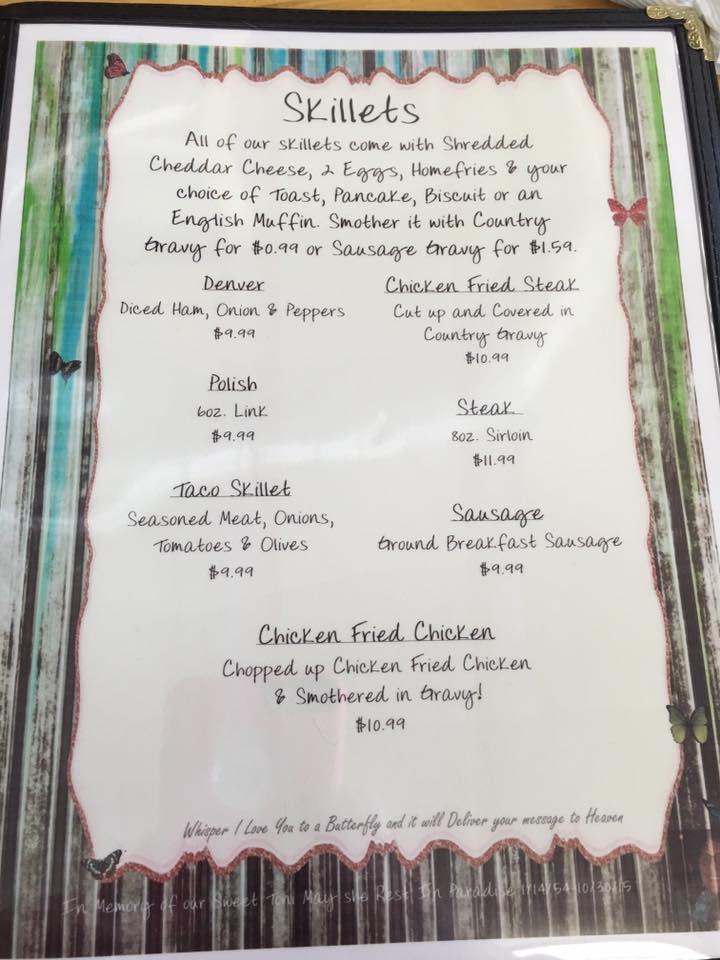 Skillets
All of our skillets come with Shredded
Cheddar Cheese, 2 Eggs, Homefries & your
choice of Toast, Pancake, Biscuit or an
English Muffin. Smother it with Country
Gravy for $0.99 or Sausage Gravy for $1.59.
Denver
Diced Ham, Onion & Peppers
$9.99
Polish
6oz. Link
$9.99
Taco Skillet
Seasoned Meat, Onions,
Tomatoes & Olives
$9.99
Chicken Fried Steak
Cut up and Covered in
Country Gravy
$10.99
Steak
8oz. Sirloin
$11.99
Sausage
Ground Breakfast Sausage
$9.99
Chicken Fried Chicken
Chopped up Chicken Fried Chicken
& Smothered in Gravy!
$10.99
Whisper I Love You to a Butterfly and it will Deliver your message to Heaven
In Memory of our Sweet Toni May she Rest In Paradise 1/14/54-10/30/15